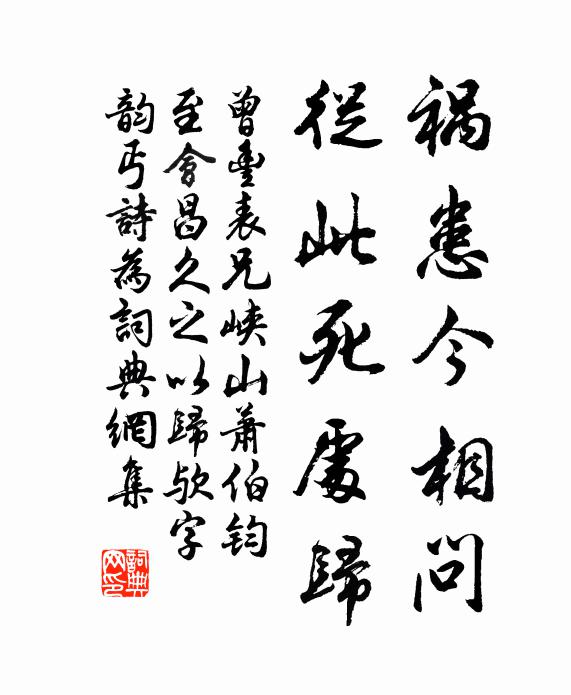 禍患今相問
從此死處歸
曾豐表兄峽山蕭伯鈞
至會昌久之以歸欤字
韵丐詩為詞典網集
詞典
网印